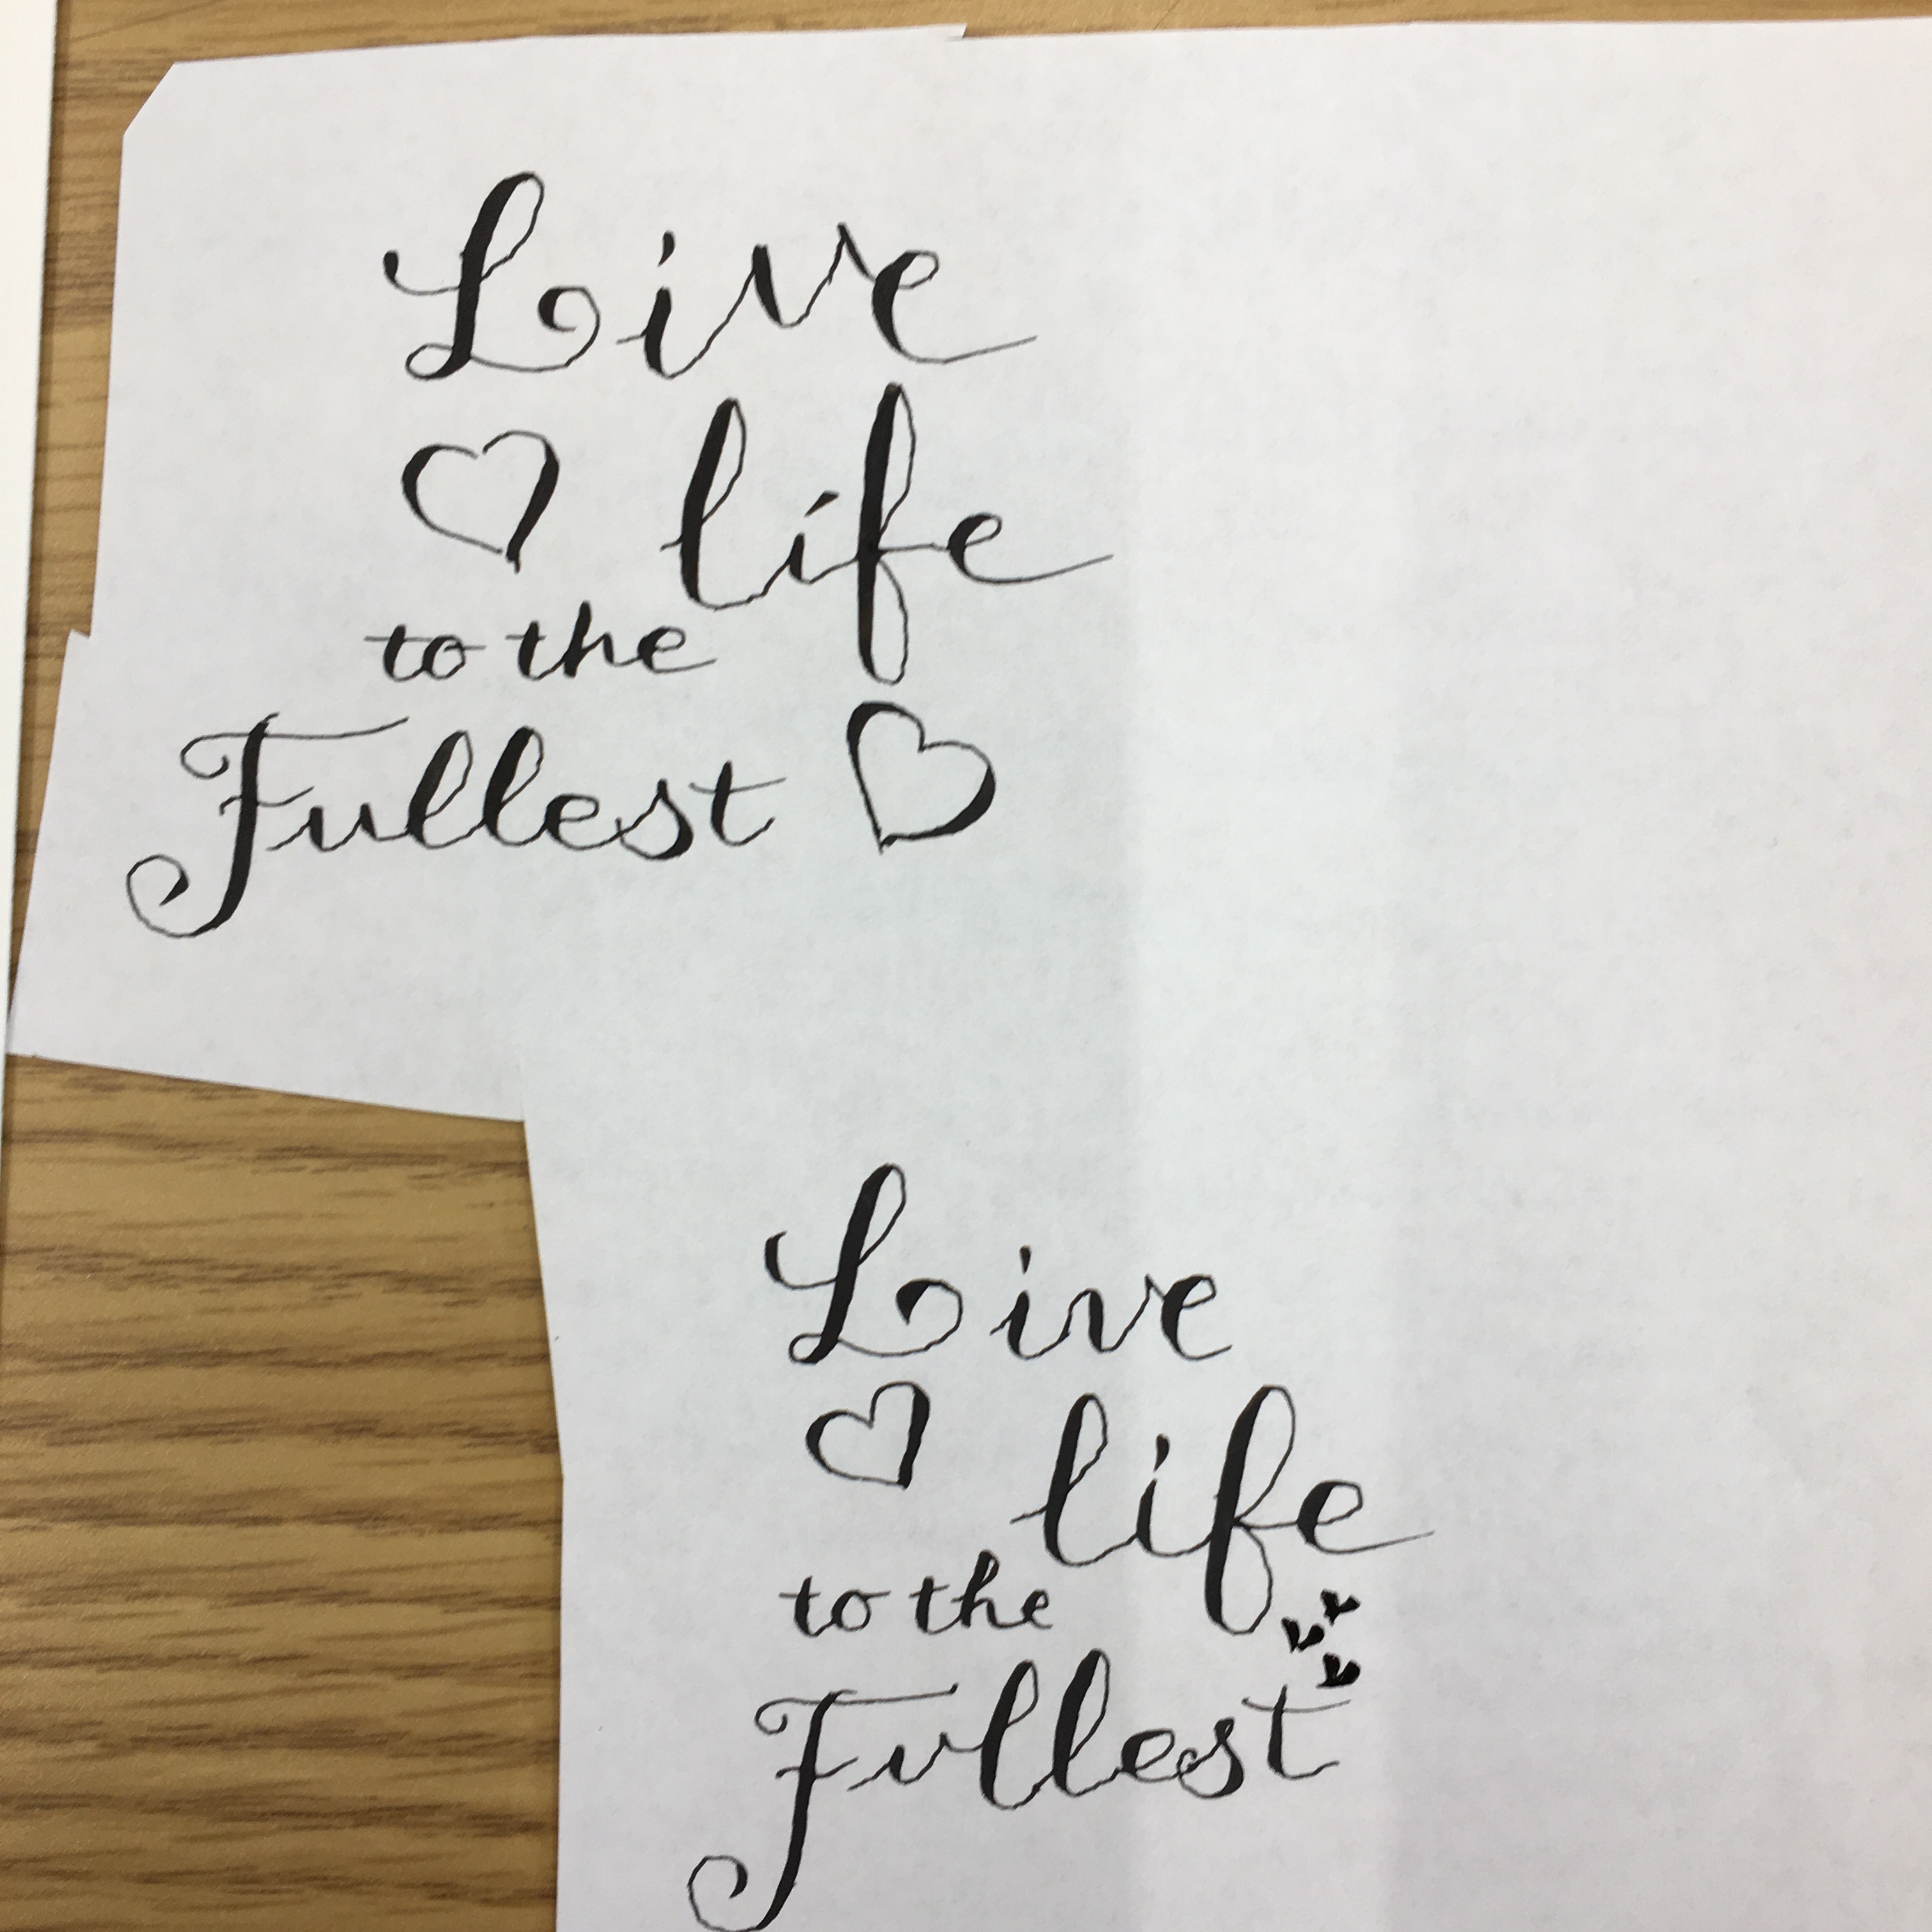 Live
life
to the
Fullest
Live
life
to the
Fullest